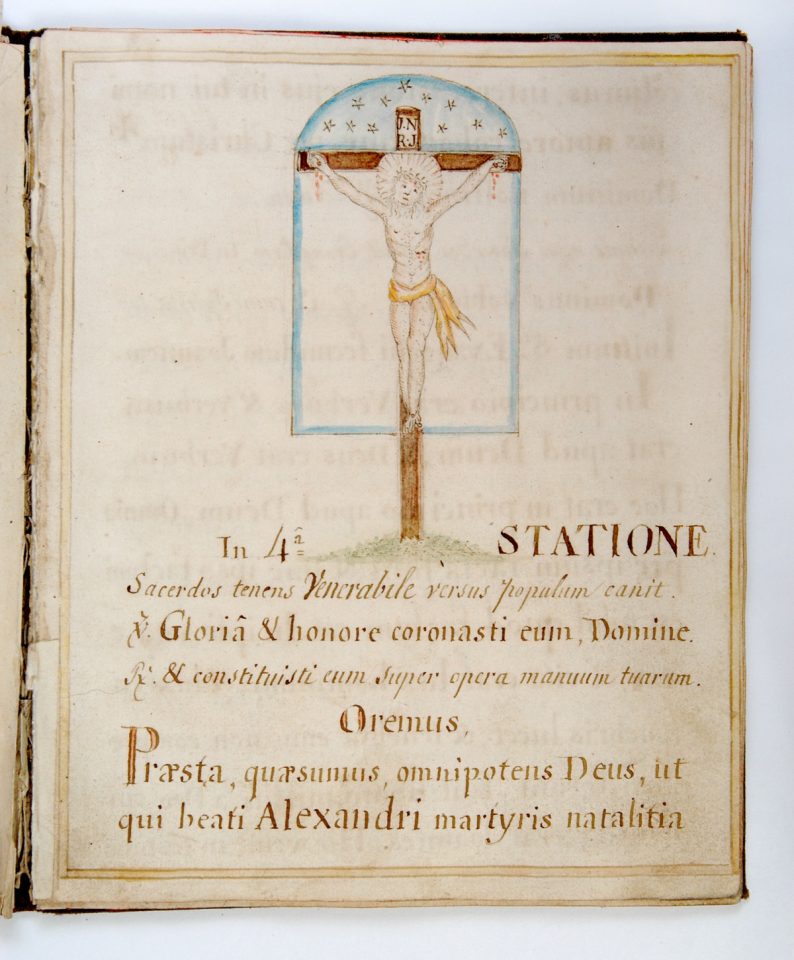 J.N
R.J.
In 4ª STATIONE.
Sacerdos tenens Venerabile versus populum canit.
℣. Gloriâ & honore coronasti eum, Domine.
℟. & constituisti eum super opera manuum tuarum.
Oremus,
Præsta, quæsumus, omnipotens Deus, ut
qui beati Alexandri martyris natalitia